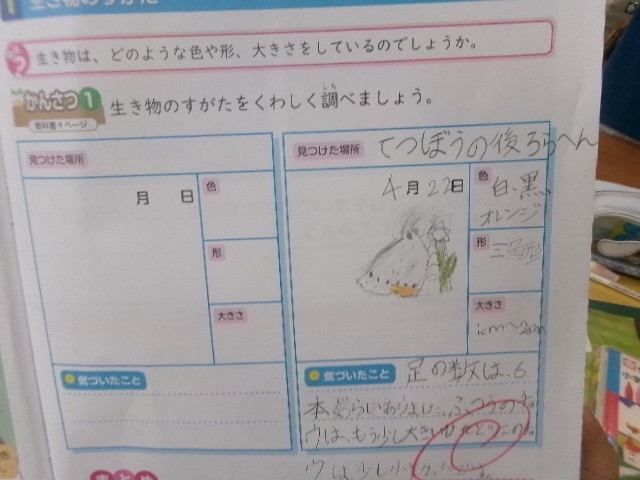 生き物のすがた
生き物は、どのような色や形、大きさをしているのでしょうか。
かんさつ1
教科書9ページ
生き物のすがたをくわしく調べましょう。
しら
見つけた場所
月 日
色
形
大きさ
気づいたこと
見つけた場所 てつぼうの後ろらへん
4月22日
色 白、黒、
オレンジ
形 三角形
大きさ
1cm〜2cm
気づいたこと 足の数は、6
本
ウは、もう少し大きい
ウは、少し
まとめ